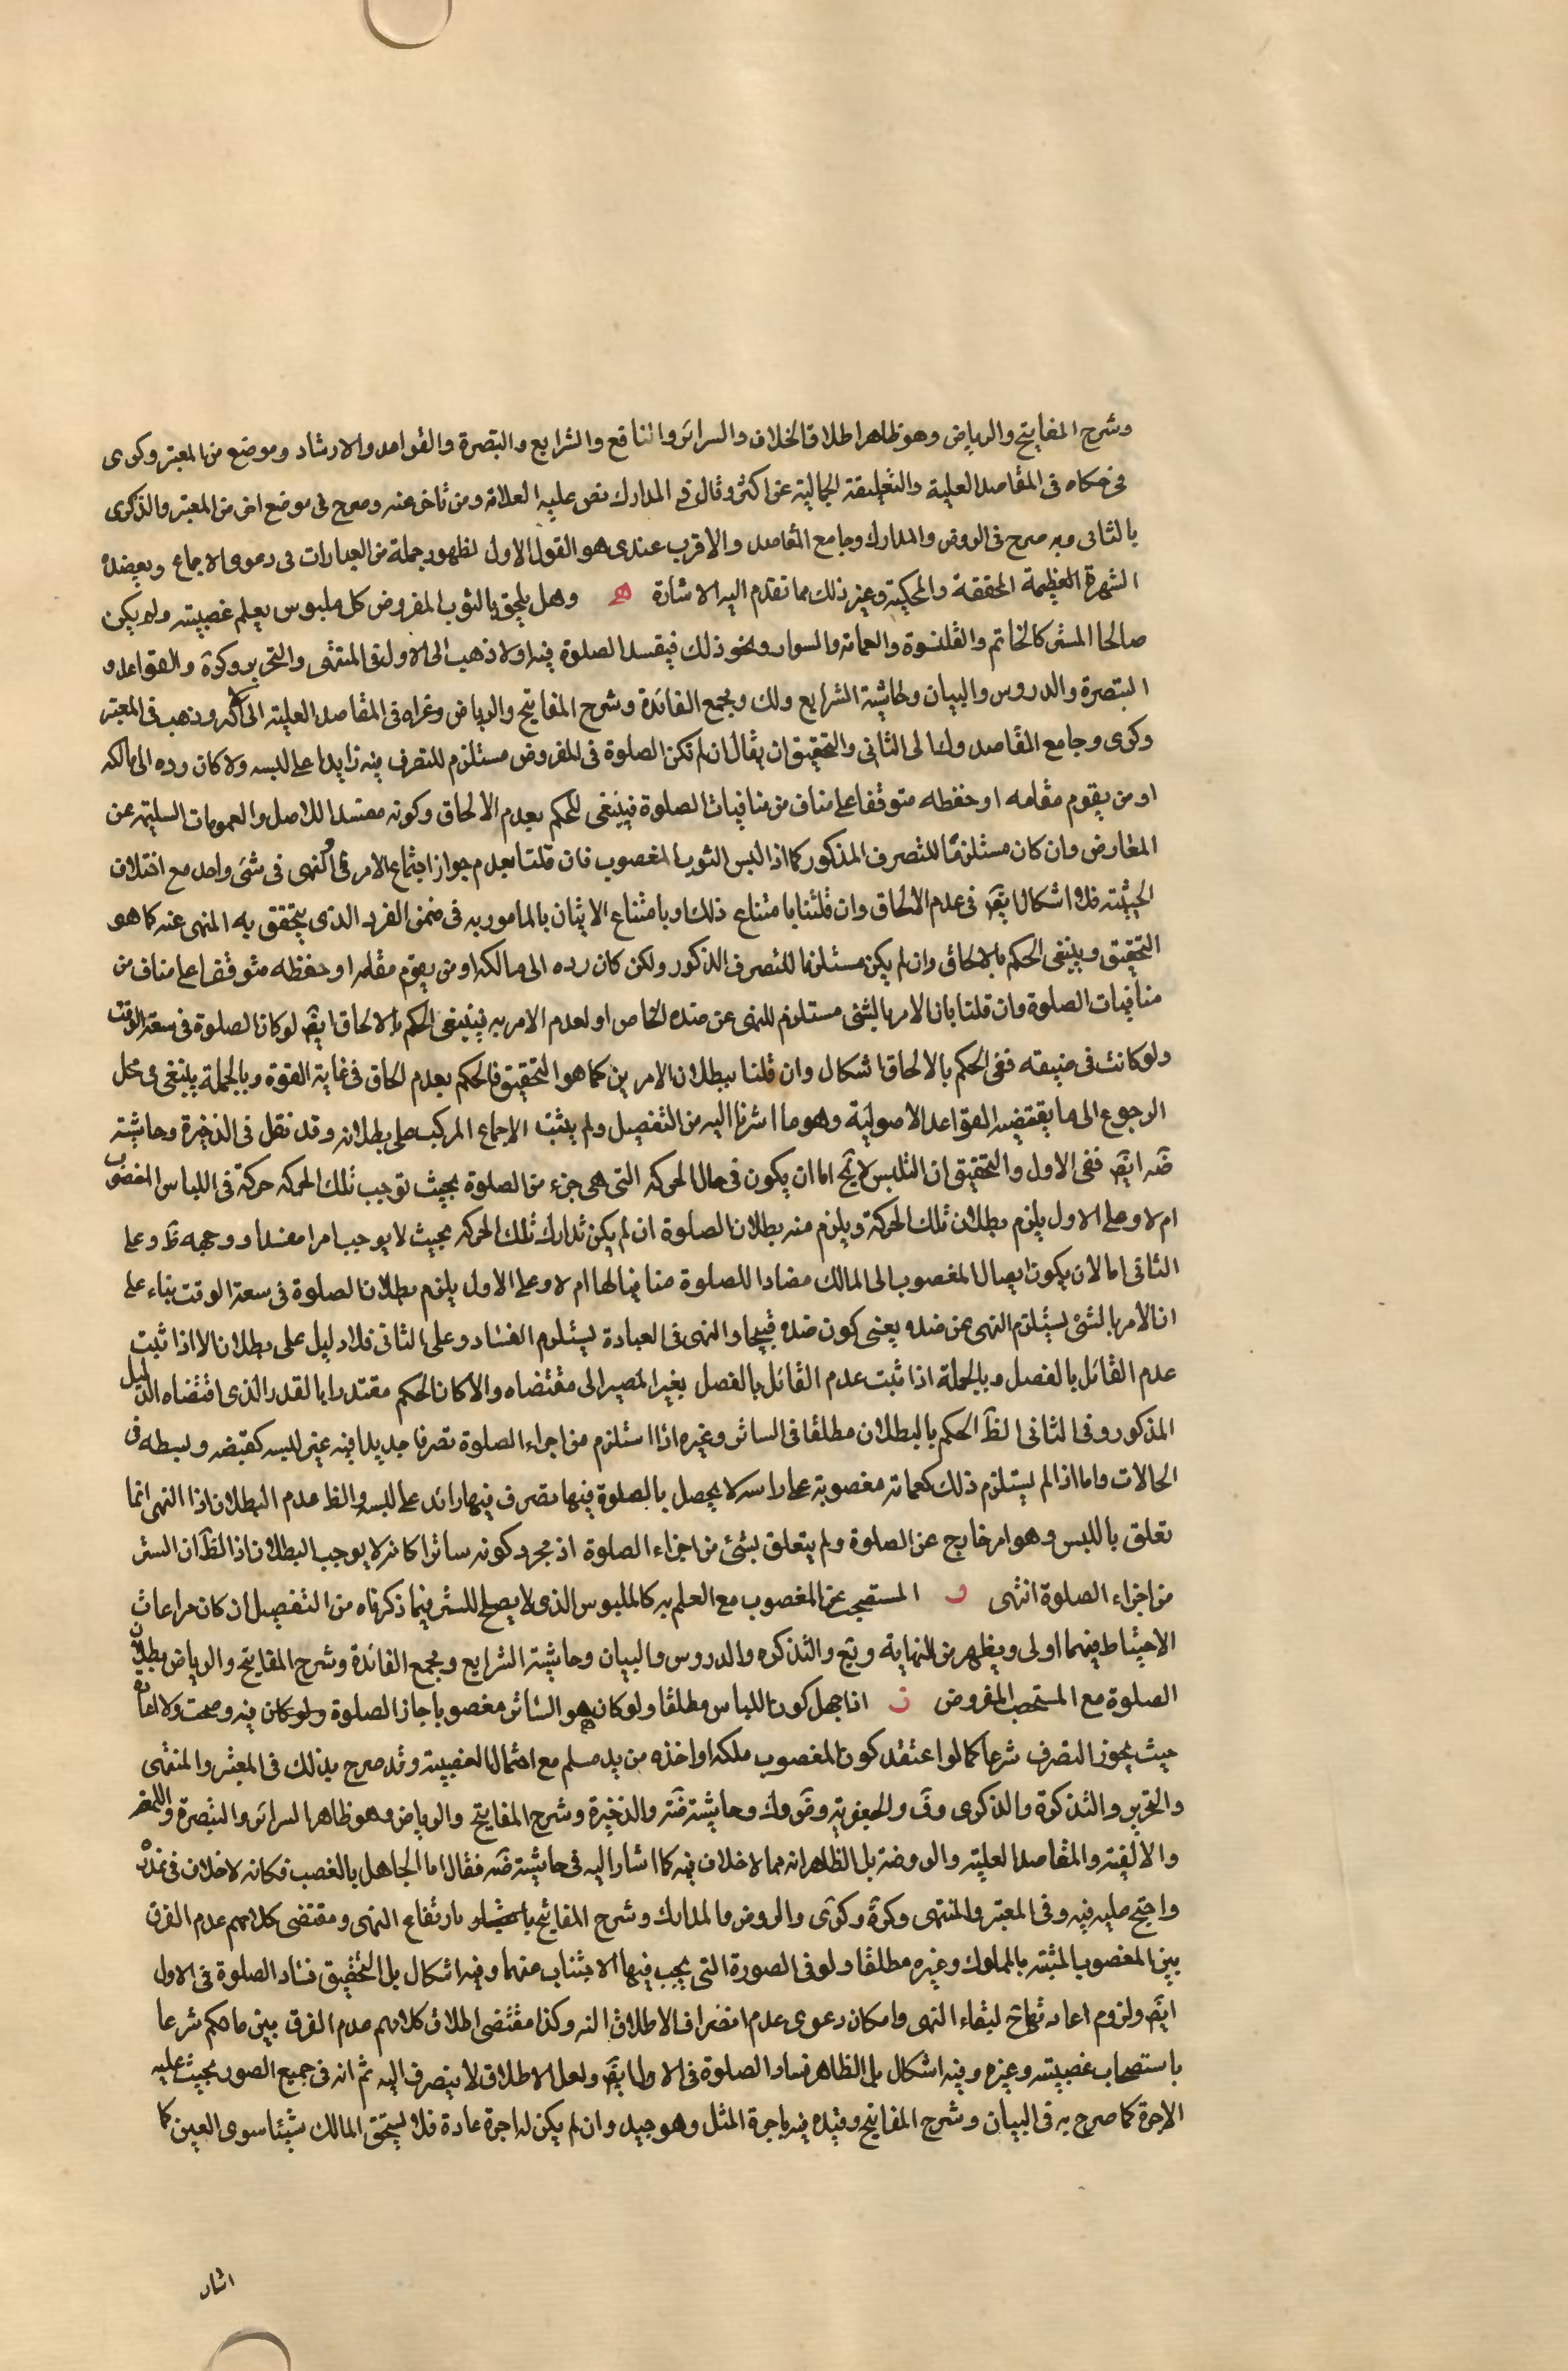 وشرح المفاتيح والرياض وهو ظاهر اطلاق الخلاف والسرائر والنافع والشرايع والتبصرة والقواعد والارشاد وموضع من المعتبر وكرى
في حكاه في المقاصد العلية والتعليقة الجمالية عن اكثر وقال في المدارك نص عليه العلامة ومن تاخر عنه وصرح في موضع اخر من المعتبر والذكرى
بالثاني وبه صرح في الروض والمدارك وجامع المقاصد والاقرب عندى هو القول الاول لظهور جملة من العبارات في دعوى الاجماع ويعضده
الشهرة العظيمة المحققة والمحكية وغير ذلك مما تقدم اليه الاشارة ه وهل يلحق بالثوب المفروض كل ملبوس يعلم غصبيته ولم يكن
صالحا للستر كالخاتم والقلنسوة والعمامة والسوار ونحو ذلك فيفسد الصلوة فيه اولا ذهب الى الاول في المنتهى والتحرير وكرة والقواعد و
التبصرة والدروس والبيان وحاشية الشرايع ولك ومجمع الفائدة وشرح المفاتيح والرياض وعزاه في المقاصد العلية الى الاكثر وذهب في المعتبر
وكرى وجامع المقاصد وك الى الثاني والتحقيق ان يقال ان لم تكن الصلوة في المفروض مستلزم للتصرف فيه زايدا على لبسه ولا كان رده الى مالكه
او من يقوم مقامه او حفظه متوقفا على مناف من منافيات الصلوة فينبغي للحكم بعدم الالحاق وكونه مفسدا للاصل والعمومات السليمة عن
المعارض وان كان مستلزما للتصرف المذكور كما اذا لبس الثوب المغصوب فان قلنا بعدم جواز اجتماع الامر والنهى في شئ واحد مع اختلاف
الحيثية فلا اشكال ايضا في عدم الالحاق وان قلنا بامتناع ذلك وبامتناع الاتيان بالمامور به في ضمن الفرد الذى يتحقق به المنهى عنه كما هو
التحقيق وينبغي الحكم بالالحاق وان لم يكن مستلزما للتصرف المذكور ولكن كان رده الى مالكه او من يقوم مقامه او حفظه متوقفا على مناف من
منافيات الصلوة وان قلنا بان الامر بالشئ مستلزم للنهى عن ضده الخاص او لعدم الامر به فينبغي الحكم بالالحاق ايضا لو كان الصلوة في سعة الوقت
ولو كانت في ضيقه ففي الحكم بالالحاق اشكال وان قلنا ببطلان الامرين كما هو التحقيق فالحكم بعدم الحاق في غاية القوة وبالجملة ينبغي في محل
الرجوع الى ما يقتضيه القواعد الاصولية وهو ما اشرنا اليه من التفصيل ولم يثبت الاجماع المركب على بطلانه وقد نقل في الذخيرة وحاشيته
ضه ايض ففي الاول والتحقيق ان التلبس لا يخ اما ان يكون في حال الحركه التى هى جزء من الصلوة بحيث توجب تلك الحركه حركة في اللباس المغصوب
ام لا وعلى الاول يلزم بطلان تلك الحركة ويلزم منه بطلان الصلوة ان لم يكن تدارك تلك الحركه بحيث لا يوجب امرا مفسدا ووجهه ظ وعلى
الثاني اما لان يكون ايصال المغصوب الى المالك مضادا للصلوة منافيا لها ام لا وعلى الاول يلزم بطلان الصلوة في سعة الوقت بناء على
ان الامر بالشئ يستلزم النهى عن ضده يعنى كون ضده قبيحا والنهى في العبادة يستلزم الفساد وعلى الثاني فلا دليل على بطلان الا اذا ثبت
عدم القائل بالفصل وبالجملة اذا ثبت عدم القائل بالفصل بغير المصير الى مقتضاه والا كان الحكم مقتدرا بالقدر الذى اقتضاه الدليل
المذكور وفي الثاني الظ الحكم بالبطلان مطلقا في الساتر وغيره اذا استلزم من اجراء الصلوة تصرفا جديدا فيه غير لبسه كقبضه وبسطه في
الحالات واما اذا لم يستلزم ذلك كعمامة مغصوبة على راسه لا يحصل بالصلوة فيها تصرف فيها زائد على لبسه والظ عدم البطلان اذا النهى انما
تعلق باللبس وهو امر خارج عن الصلوة ولم يتعلق بشئ من اجزاء الصلوة اذ مجرد كونه ساترا كانه لا يوجب البطلان اذ الظ ان الستر
من اجزاء الصلوة انتهى و المستصحب من المغصوب مع العلم به كالملبوس الذى لا يصلح للستر فيما ذكرناه من التفصيل ان كان مراعات
الاحتياط فيهما اولى ويظهر من النهاية ويع والتذكره والدروس والبيان وحاشية الشرايع ومجمع الفائدة وشرح المفاتيح والرياض بطلان
الصلوة مع المستصحب المفروض ز اذا جهل كون اللباس مطلقا ولو كان هو الساتر مغصوبا جاز الصلوة فيه وصحت ولا اعادة
حيث يجوز التصرف شرعا كما لو اعتقد كون المغصوب ملكه او اخذه من يد مسلم مع احتمال الغصبية وقد صرح بذلك في المعتبر والمنتهى
والتحرير والتذكرة والذكرى وق والجعفرية وض وك وحاشيته ضه والذخيرة وشرح المفاتيح والرياض وهو ظاهر السرائر والتبصرة واللمعة
والالفية والمقاصد العلية والروضة بل الظاهر انه مما لا خلاف فيه كما اشار اليه في حاشيته ضه فقال اما الجاهل بالغصب فكانه لا خلاف في عذره
واحتج عليه فيه وفي المعتبر والمنتهى وكرة وكرى والروض والمدارك وشرح المفاتيح بارتفاع النهى ومقتضى كلامهم عدم الفرق
بين المغصوب المشتبه بالمملوك وغيره مطلقا ولو في الصورة التى يجب فيها الاجتناب عنهما وفيه اشكال بل التحقيق فساد الصلوة في الاول
ايض ولزوم اعادتها ح لبقاء النهى وامكان دعوى عدم انصراف الاطلاق اليه وكذا مقتضى اطلاق كلامهم عدم الفرق بين ما حكم شرعا
باستصحاب غصبيته وغيره وفيه اشكال بل الظاهر فساد الصلوة في الاول ايض ولعل الاطلاق لا ينصرف اليه ثم انه في جميع الصور بحيث عليه
الاجرة كما صرح به في البيان وشرح المفاتيح وقيده فيه باجرة المثل وهو جيد وان لم يكن له اجرة عادة فلا يستحق المالك شيئا سوى العين كما
اشار